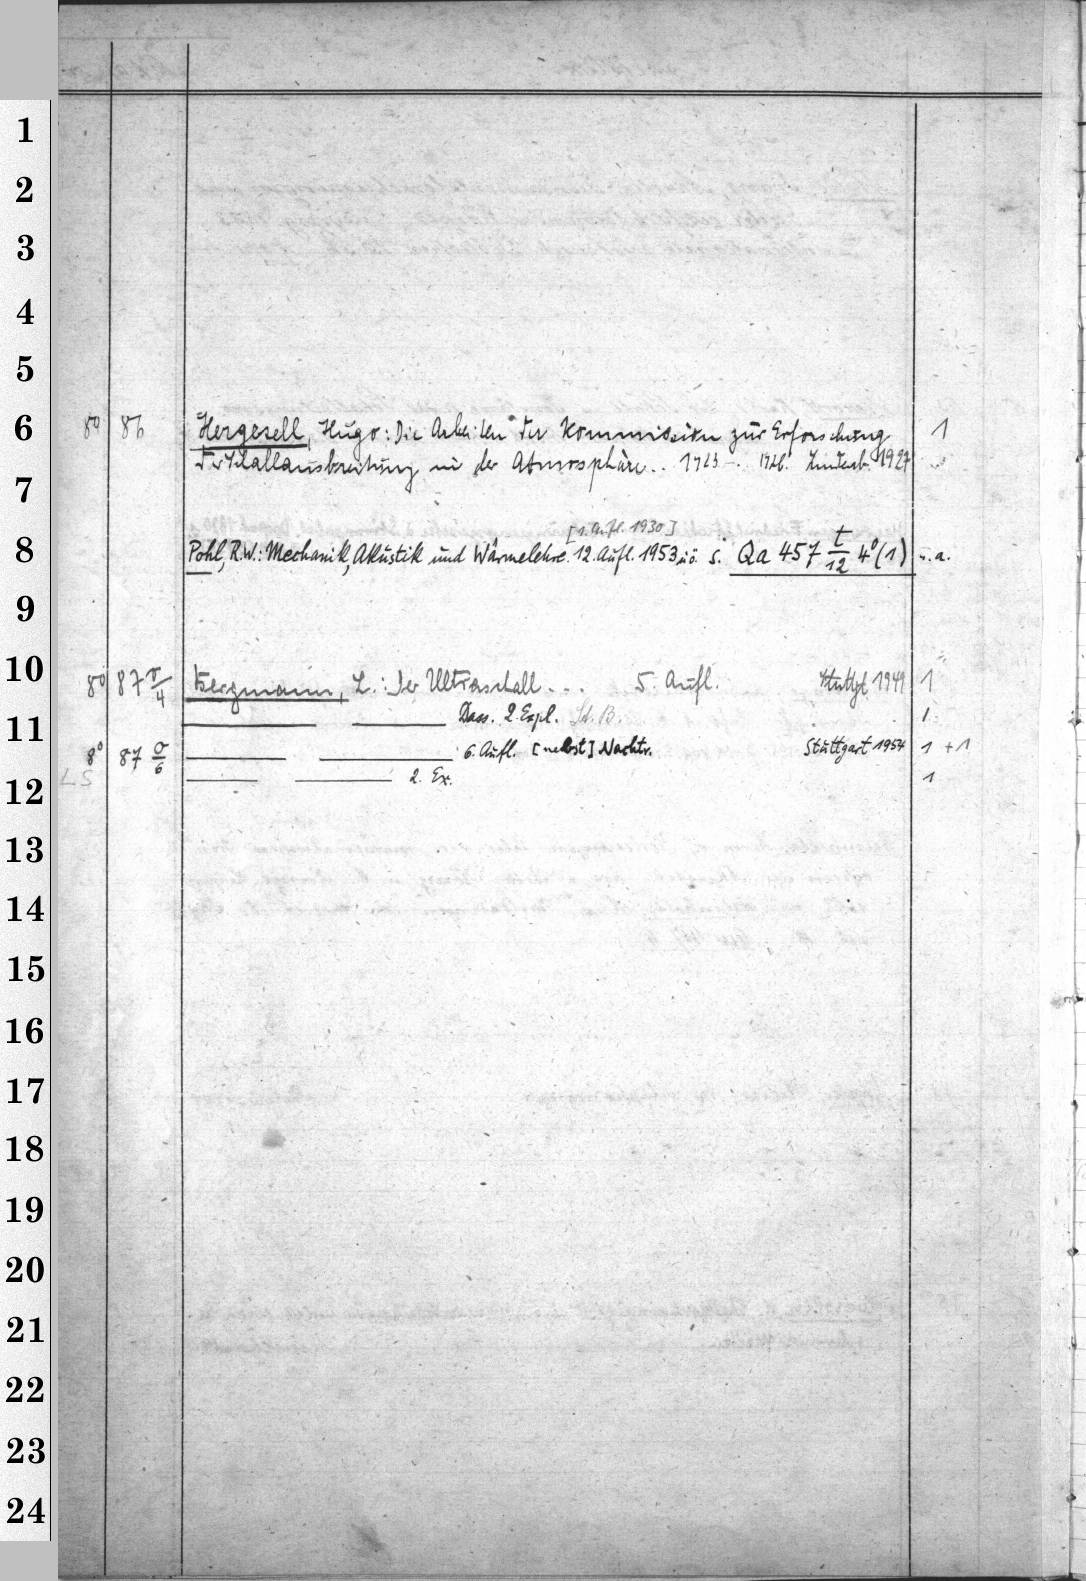 1
2
3
4
5
6
8° 86 Hergesell, Hugo: Die Arbeiten der Kommission zur Erforschung 1
der Schallausbreitung in der Atmosphäre.. 1923 - 1926. Lindenb. 1927
7
[1. Aufl. 1930]
8
Pohl, R.W.: Mechanik, Akustik und Wärmelehre. 12. Aufl. 1953 u.ö. s. Qa 457 t/12 4°(1) u.a.
9
10
8° 87 r/4 Bergmann, L.: Der Ultraschall... 5. Aufl. Stuttgt 1949 1
11
Dass. 2. Expl. Sd. B. 1
8° 87 σ/6 6. Aufl. [nebst] Nachtr. Stuttgart 1954 1 +1
LS 2. Ex. 1
12
13
14
15
16
17
18
19
20
21
22
23
24